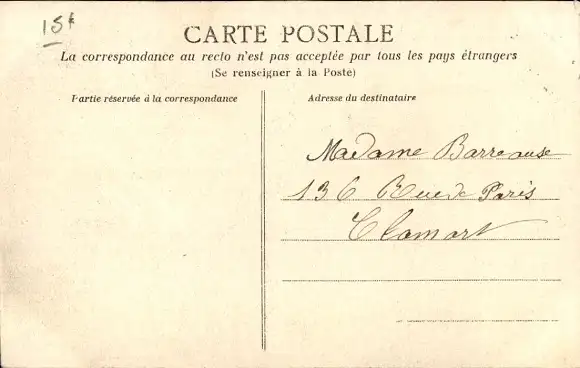 15f
CARTE POSTALE
La correspondance au recto n'est pas acceptée par tous les pays étrangers
(Se renseigner à la Poste)
Partie réservée à la correspondance
Adresse du destinataire
Madame
136 Rue de Paris
Clamart